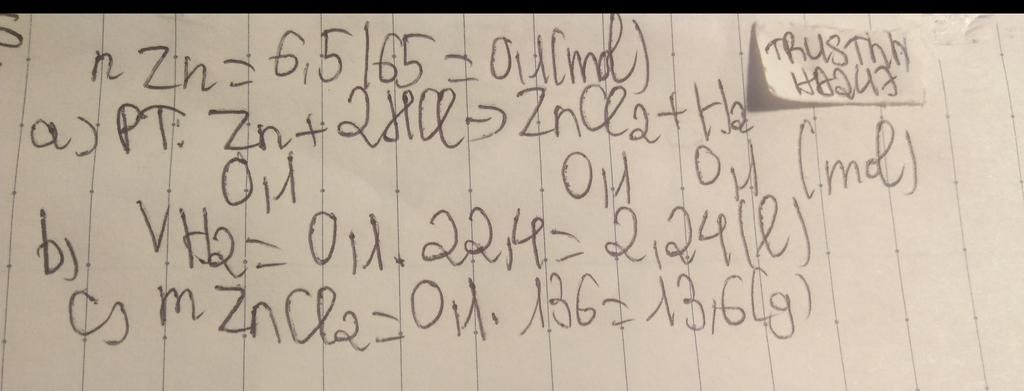 n Zn = 6,5/65 = 0,1(mol)
TRUSTNN
HB247
a) PT: Zn + 2HCl → ZnCl2 + H2
0,1 0,1 0,1 (mol)
b) VH2 = 0,1. 22,4 = 2,24(l)
c) m ZnCl2 = 0,1. 136 = 13,6(g)